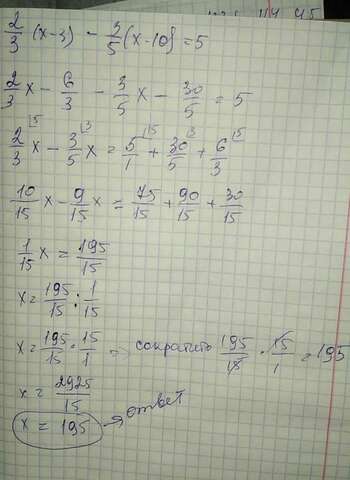 2/3 (x-3) - 3/5 (x-10) = 5
2/3 x - 6/3 - 3/5 x - 30/5 = 5
2/3 |5 x - 3/5 |3 x = 5/1 |15 + 30/5 |3 + 6/3 |5
10/15 x - 9/15 x = 75/15 + 90/15 + 30/15
1/15 x = 195/15
x = 195/15 : 1/15
x = 195/15 · 15/1 => сократить 195/15 · 15/1 = 195
x = 2925/15
x = 195 → ответ